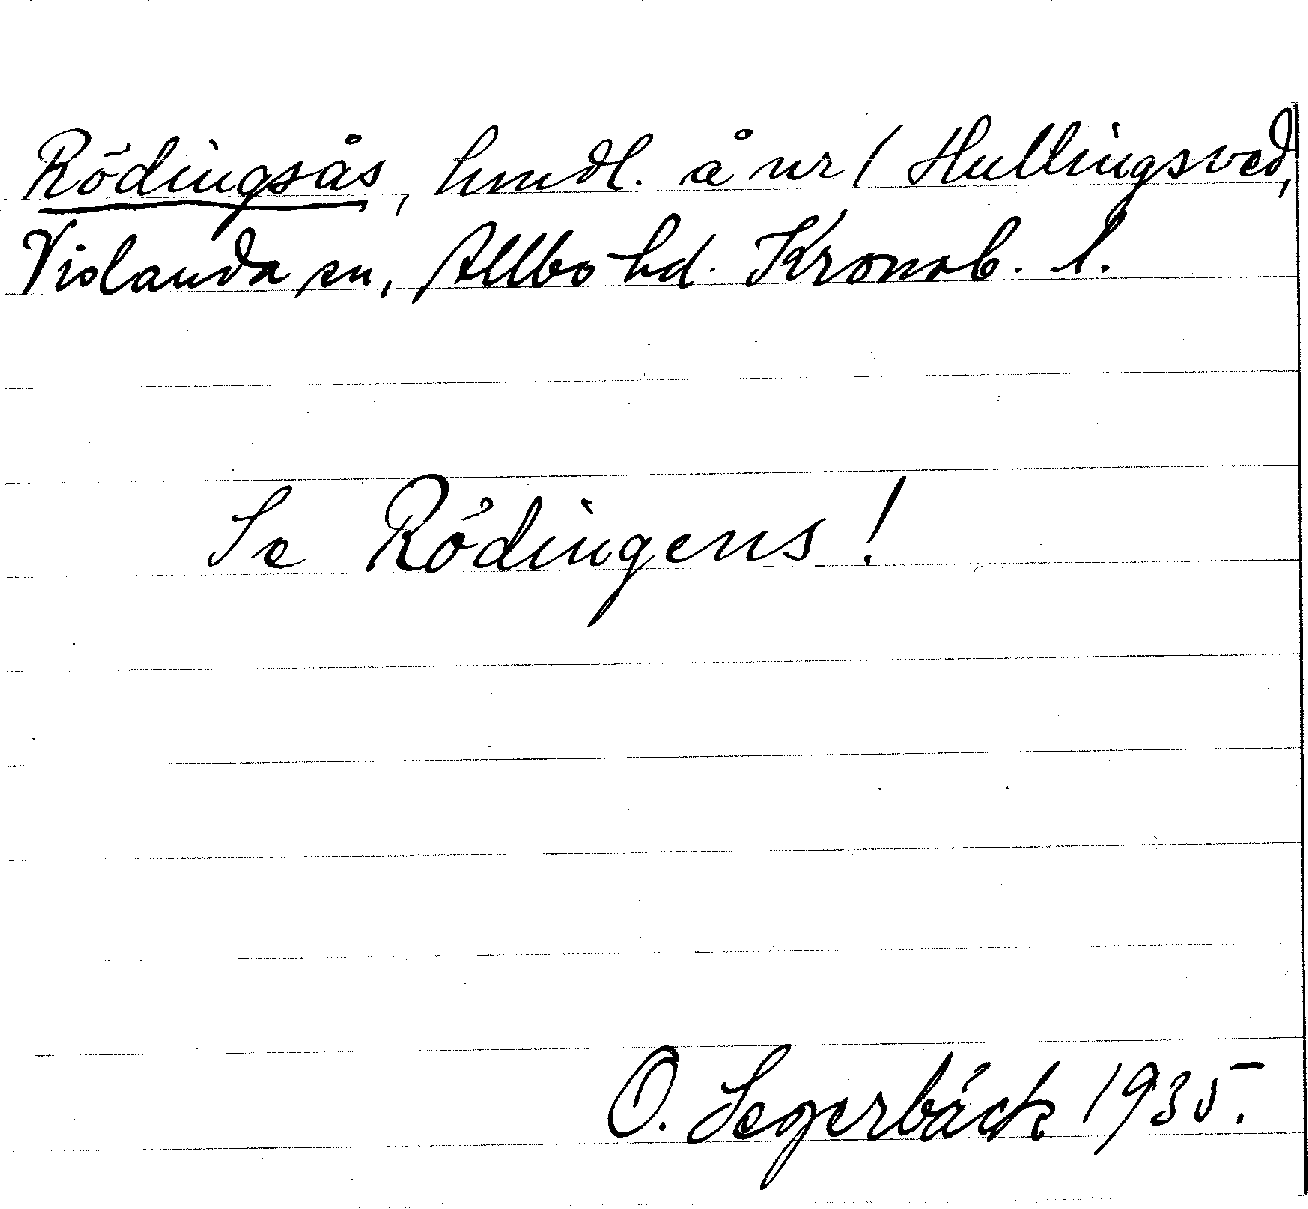 Rödingsås, hmdl. å nr 1 Hullingsved,
Vislanda sn, Allbo hd. Kronob. l.
Se Rödingens!
O. Segerbäck 1935.